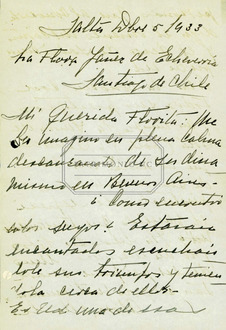 Salta Dbre 5/933
Sra Flora Yáñez de Echeverria
Santiago de Chile
Mi Querida Florita: Me
la imagino en plena calma
descansando de su dina
mismo en Buenos Aires -
¿ Como encontró
a los suyos? Estarán
encantados escuchán
dole sus triunfos y tenien
dola cerca de ellos -
Es Ud una de esas